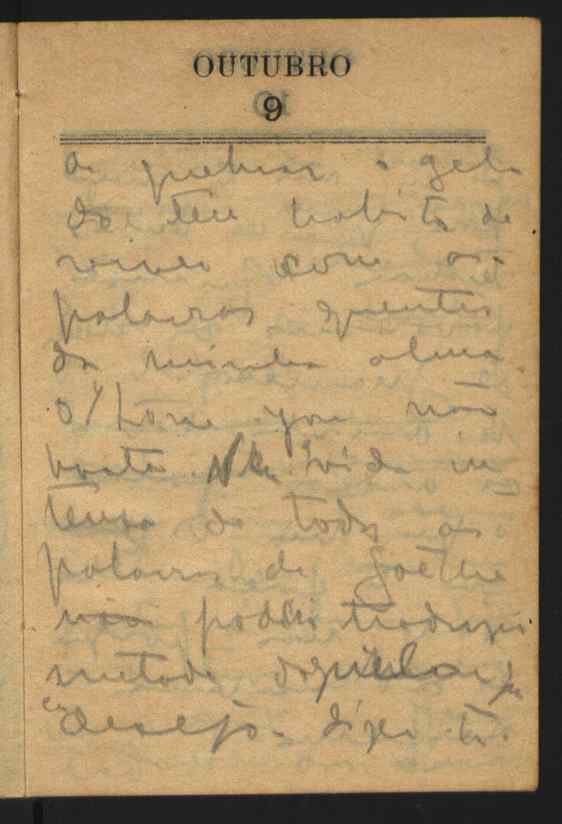 OUTUBRO
9
a quebrar o gelo
do teu habito de
com as
palavras quentes
da minha alma.
O I love you não
basta. Na vida in
tensa de todos as
palavras de Goethe
não poderá traduzir
metade daquilo que
eu desejo. dizer-te.